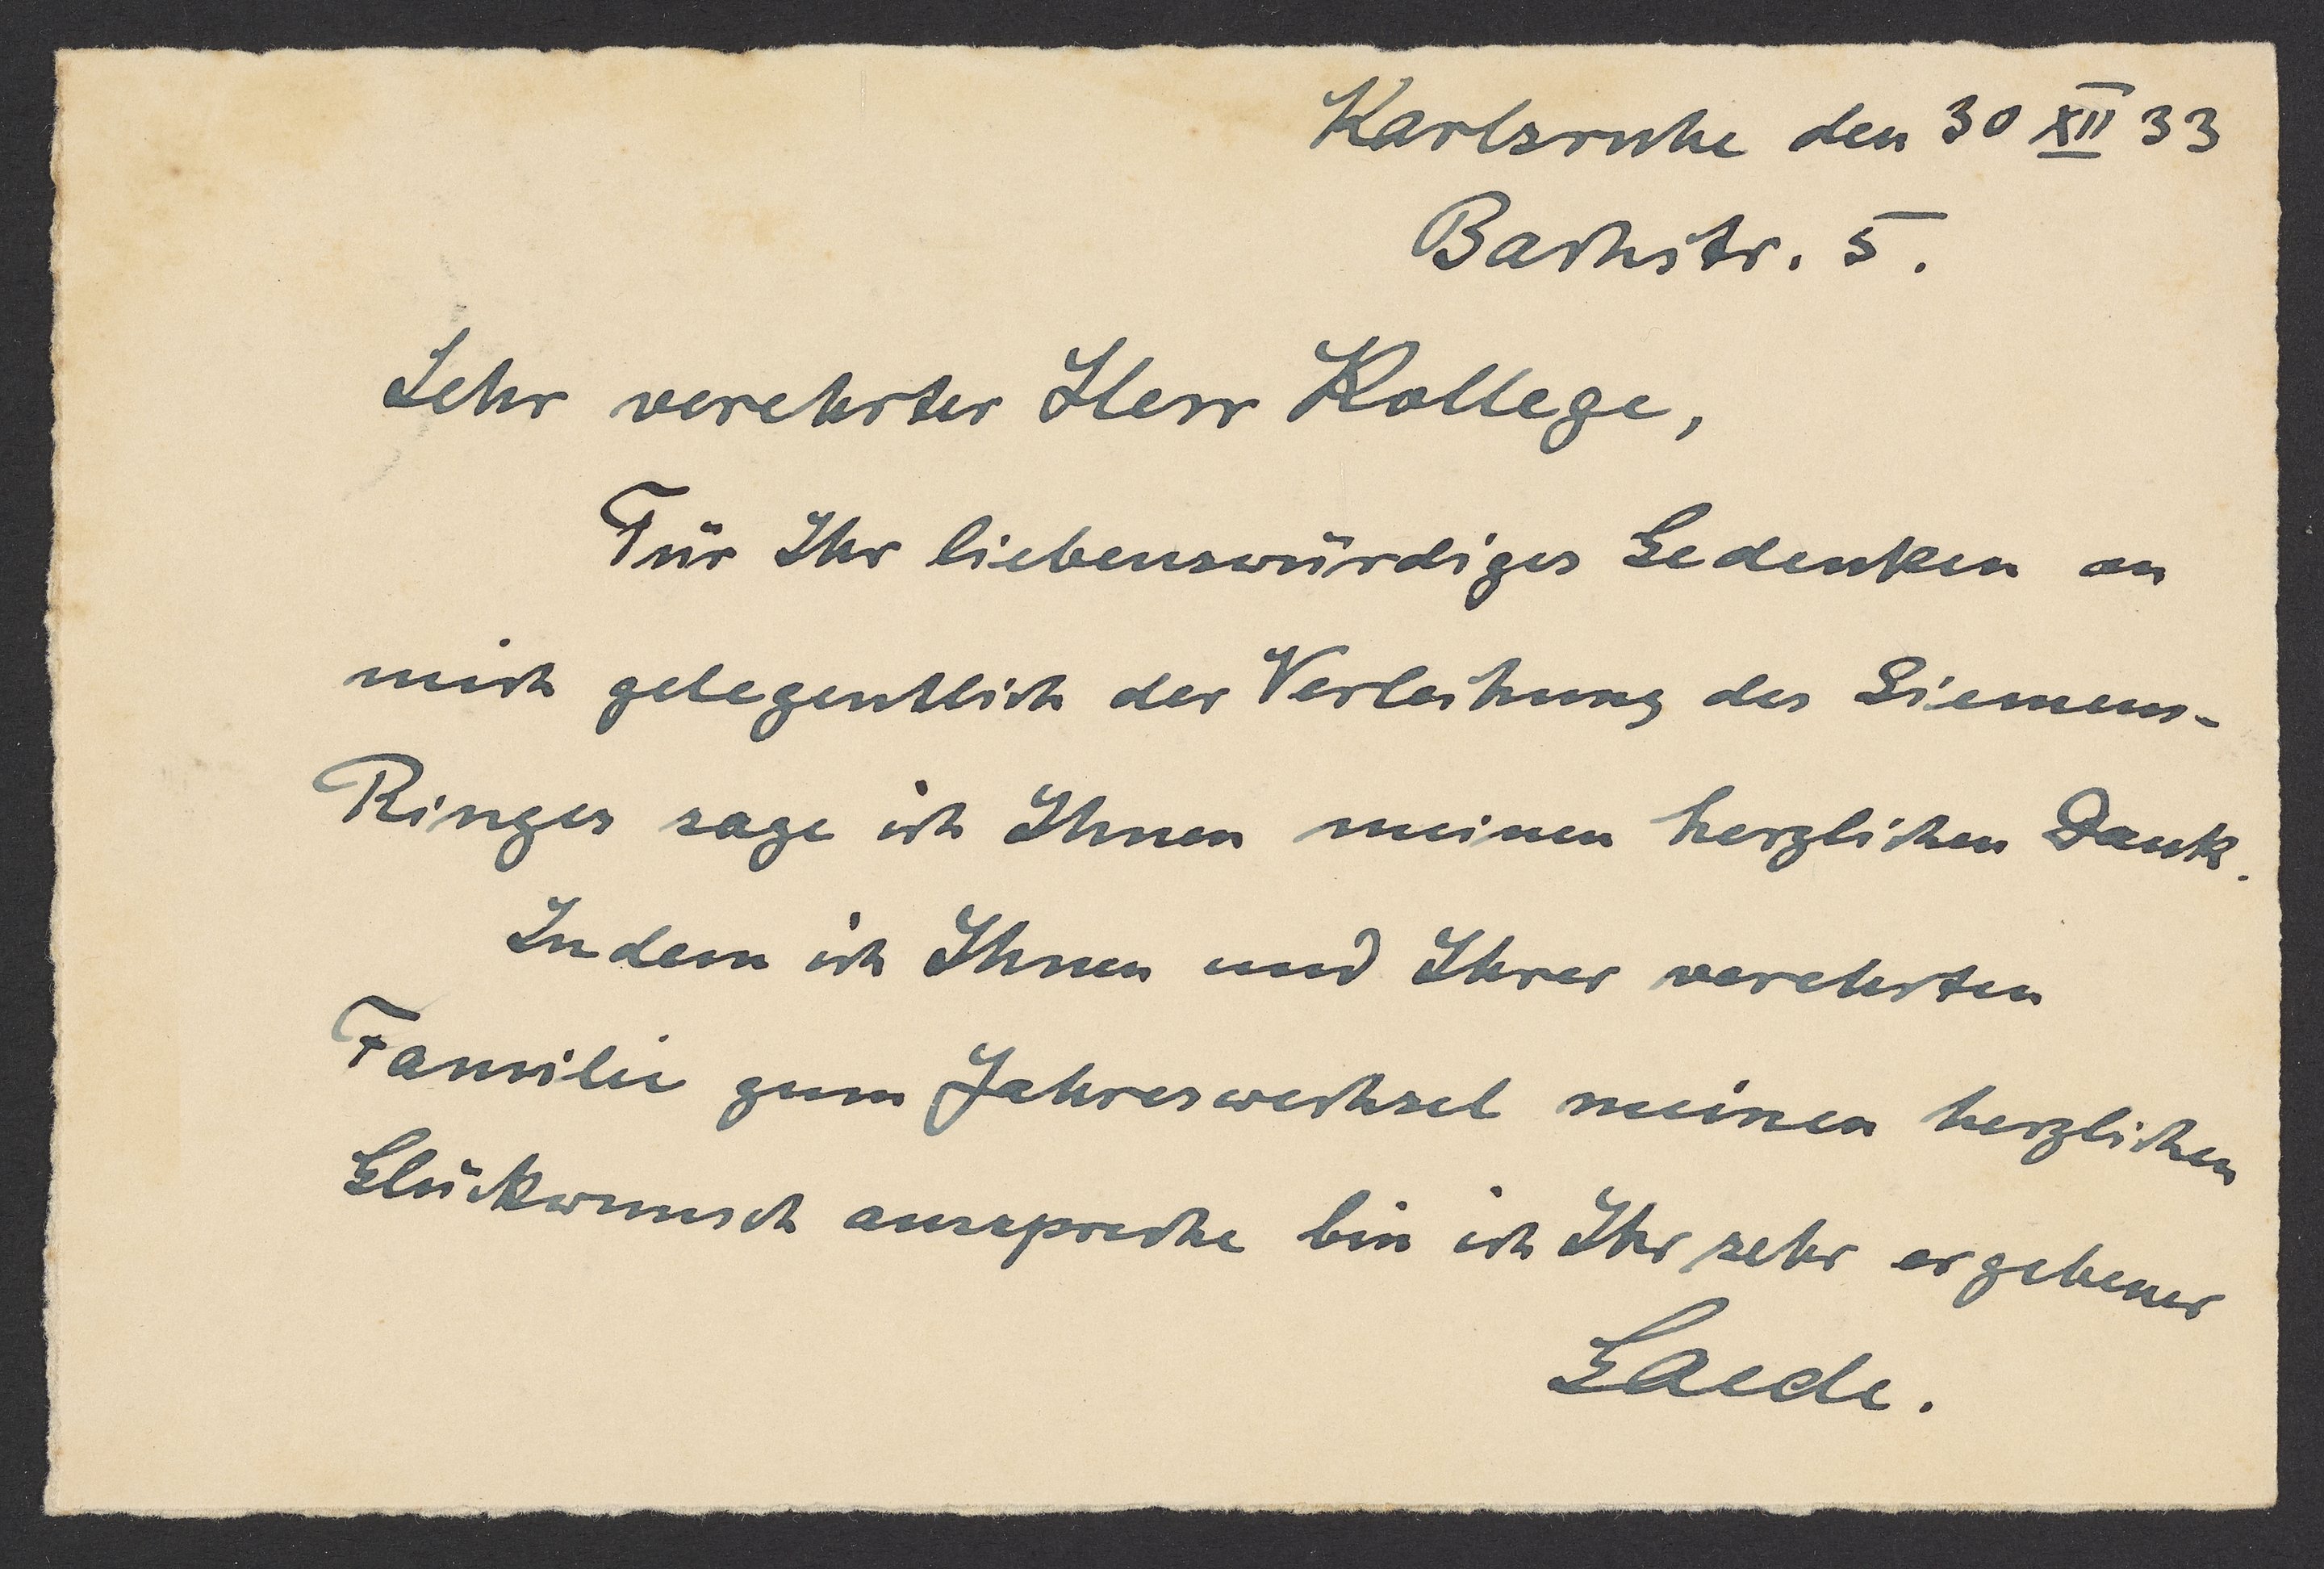 Karlsruhe den 30 XII 33
Bachstr. 5.
Sehr verehrter Herr Kollege,
Für Ihr liebenswürdiges Gedenken an
mich gelegentlich der Verleihung des Siemens-
Ringes sage ich Ihnen meinen herzlichen Dank.
Indem ich Ihnen und Ihrer verehrten
Familie zum Jahreswechsel meinen herzlichen
Glückwunsch ausspreche bin ich Ihr sehr ergebener
Gaede.